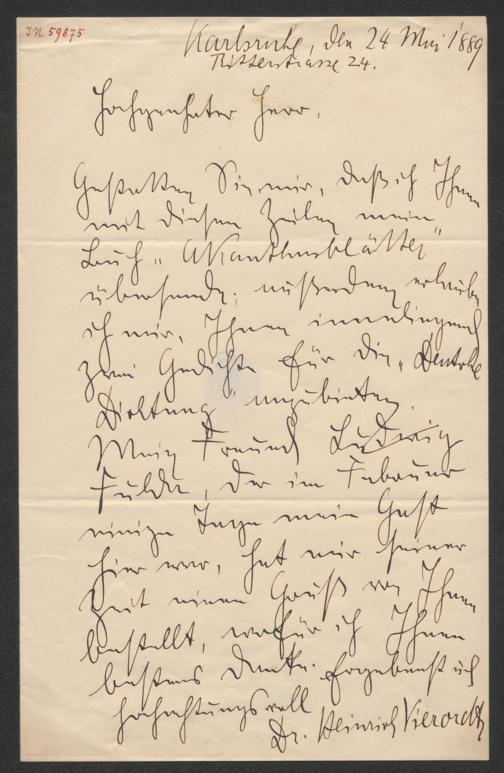 I.N. 59875
Karlsruhe, den 24 Mai 1889
Ritterstrasse 24.
Hochgeehrter Herr,
Gestatten Sie mir, daß ich Ihnen
mit diesen Zeilen mein
Buch „Akanthusblätter"
übersende; außerdem erlaube
ich mir, Ihnen inneliegend
zwei Gedichte für die „Deutsche
Dichtung" anzubieten.
Mein Freund Ludwig
Fulda, der im Februar
einige Tage mein Gast
hier war, hat mir seiner
Zeit einen Gruß von Ihnen
bestellt, wofür ich Ihnen
bestens danke. Ergebenst und
hochachtungsvoll
Dr. Heinrich Vierordt